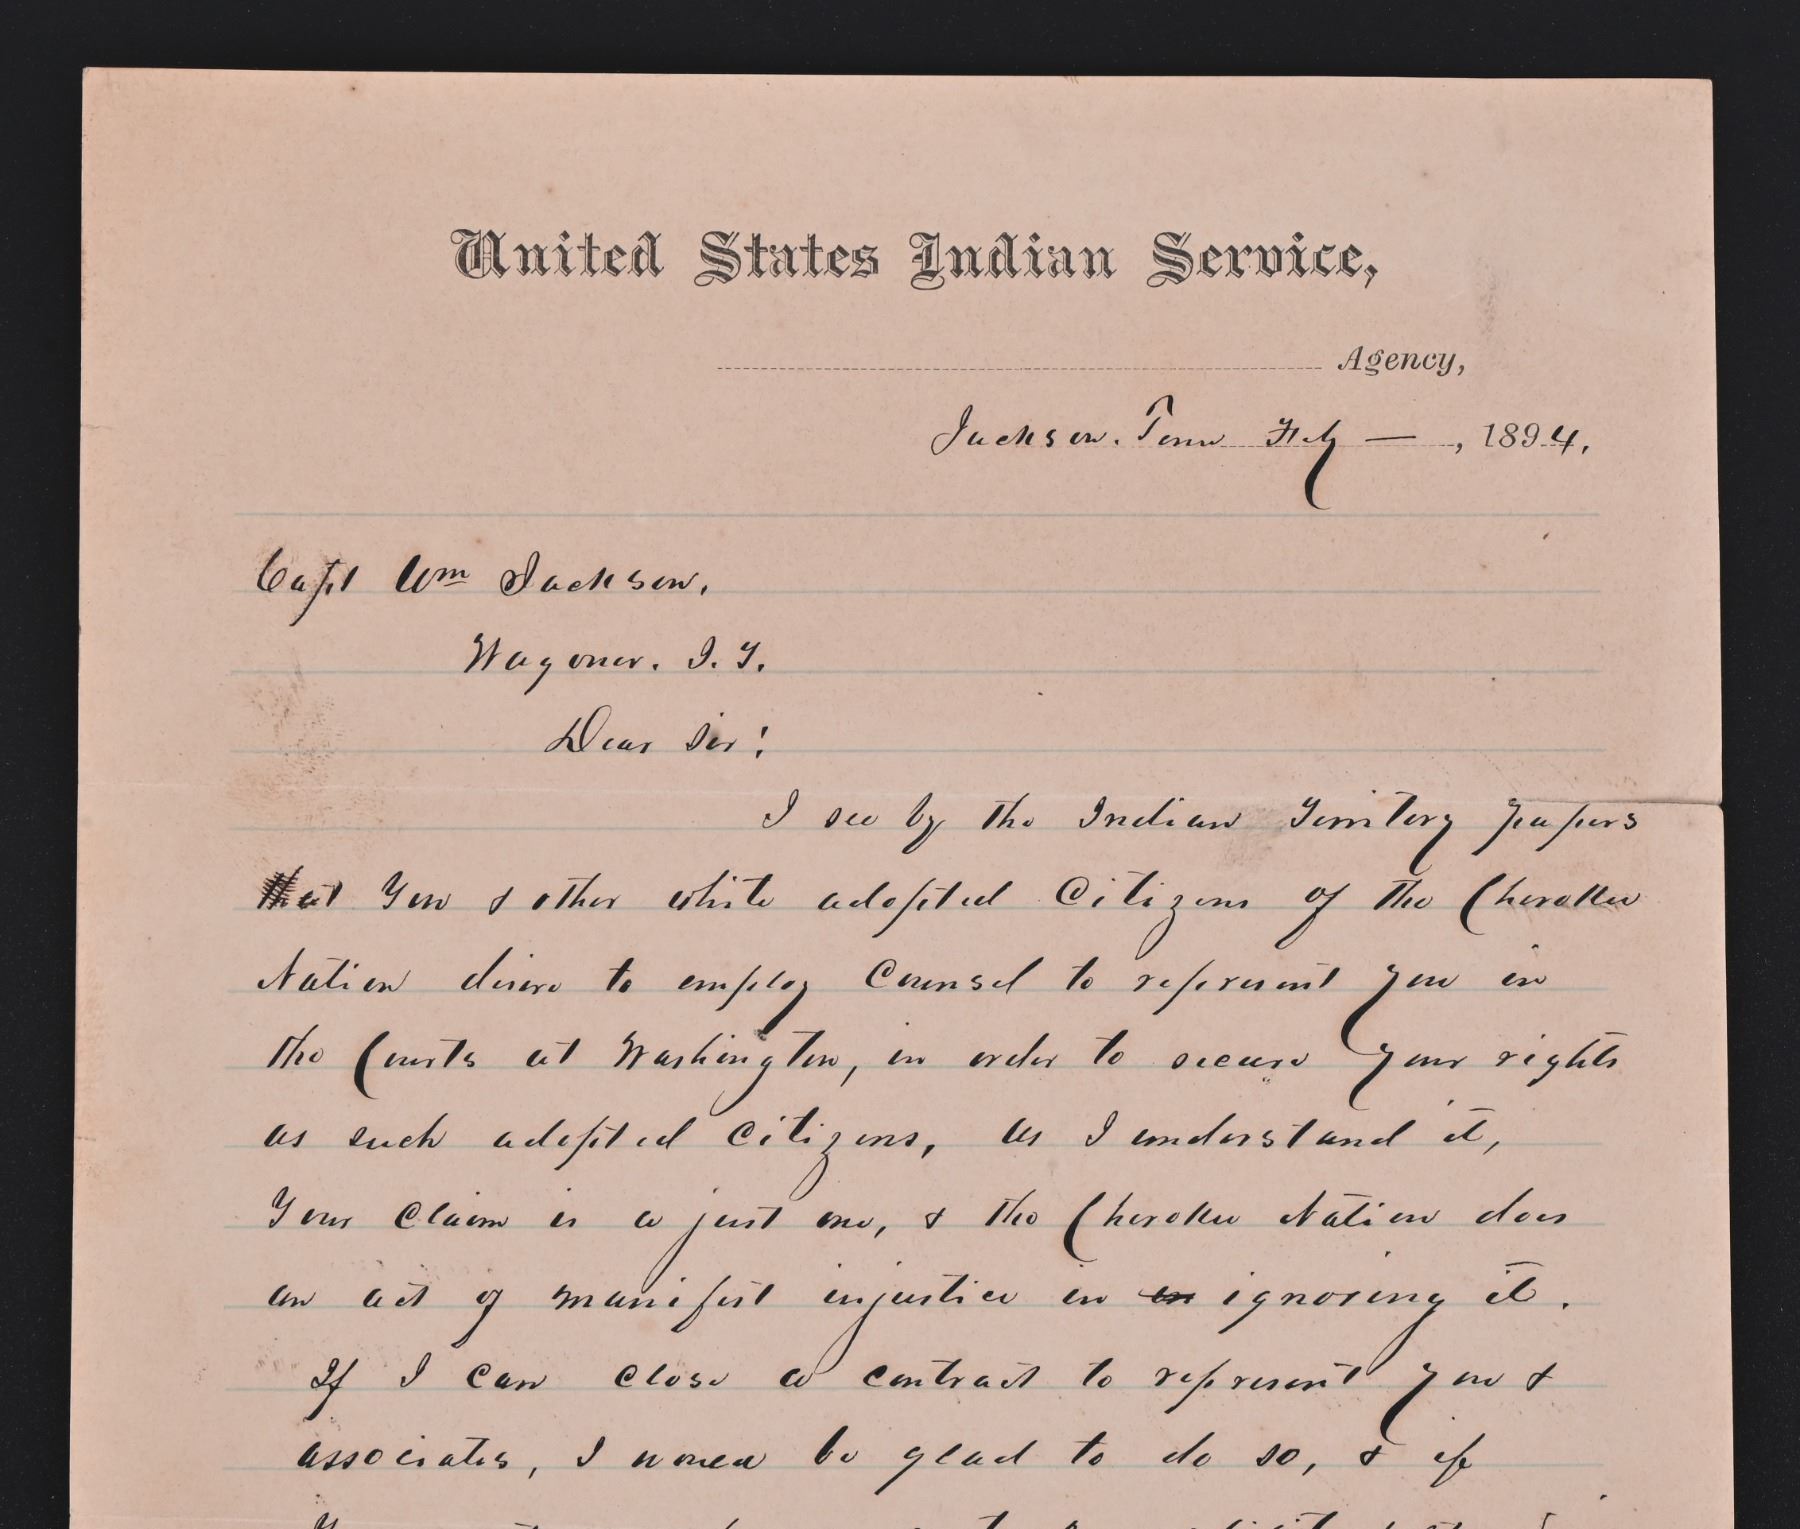 United States Indian Service,
Agency,
Jackson. Tenn Feby — , 1894.
Capt Wm Jackson,
Wagoner. I. T.
Dear Sir!
I see by the Indian Territory papers
that you & other white adopted Citizens of the Cherokee
Nation desire to employ Counsel to represent you in
the Courts at Washington, in order to secure your rights
as such adopted Citizens, as I understand it,
Your Claim is a just one, & the Cherokee Nation does
an act of manifest injustice in in ignoring it.
If I can close a contract to represent you &
associates, I would be glad to do so, & if